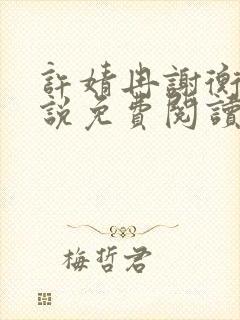 許婧冉謝衡
說免費閱讀
梅哲君